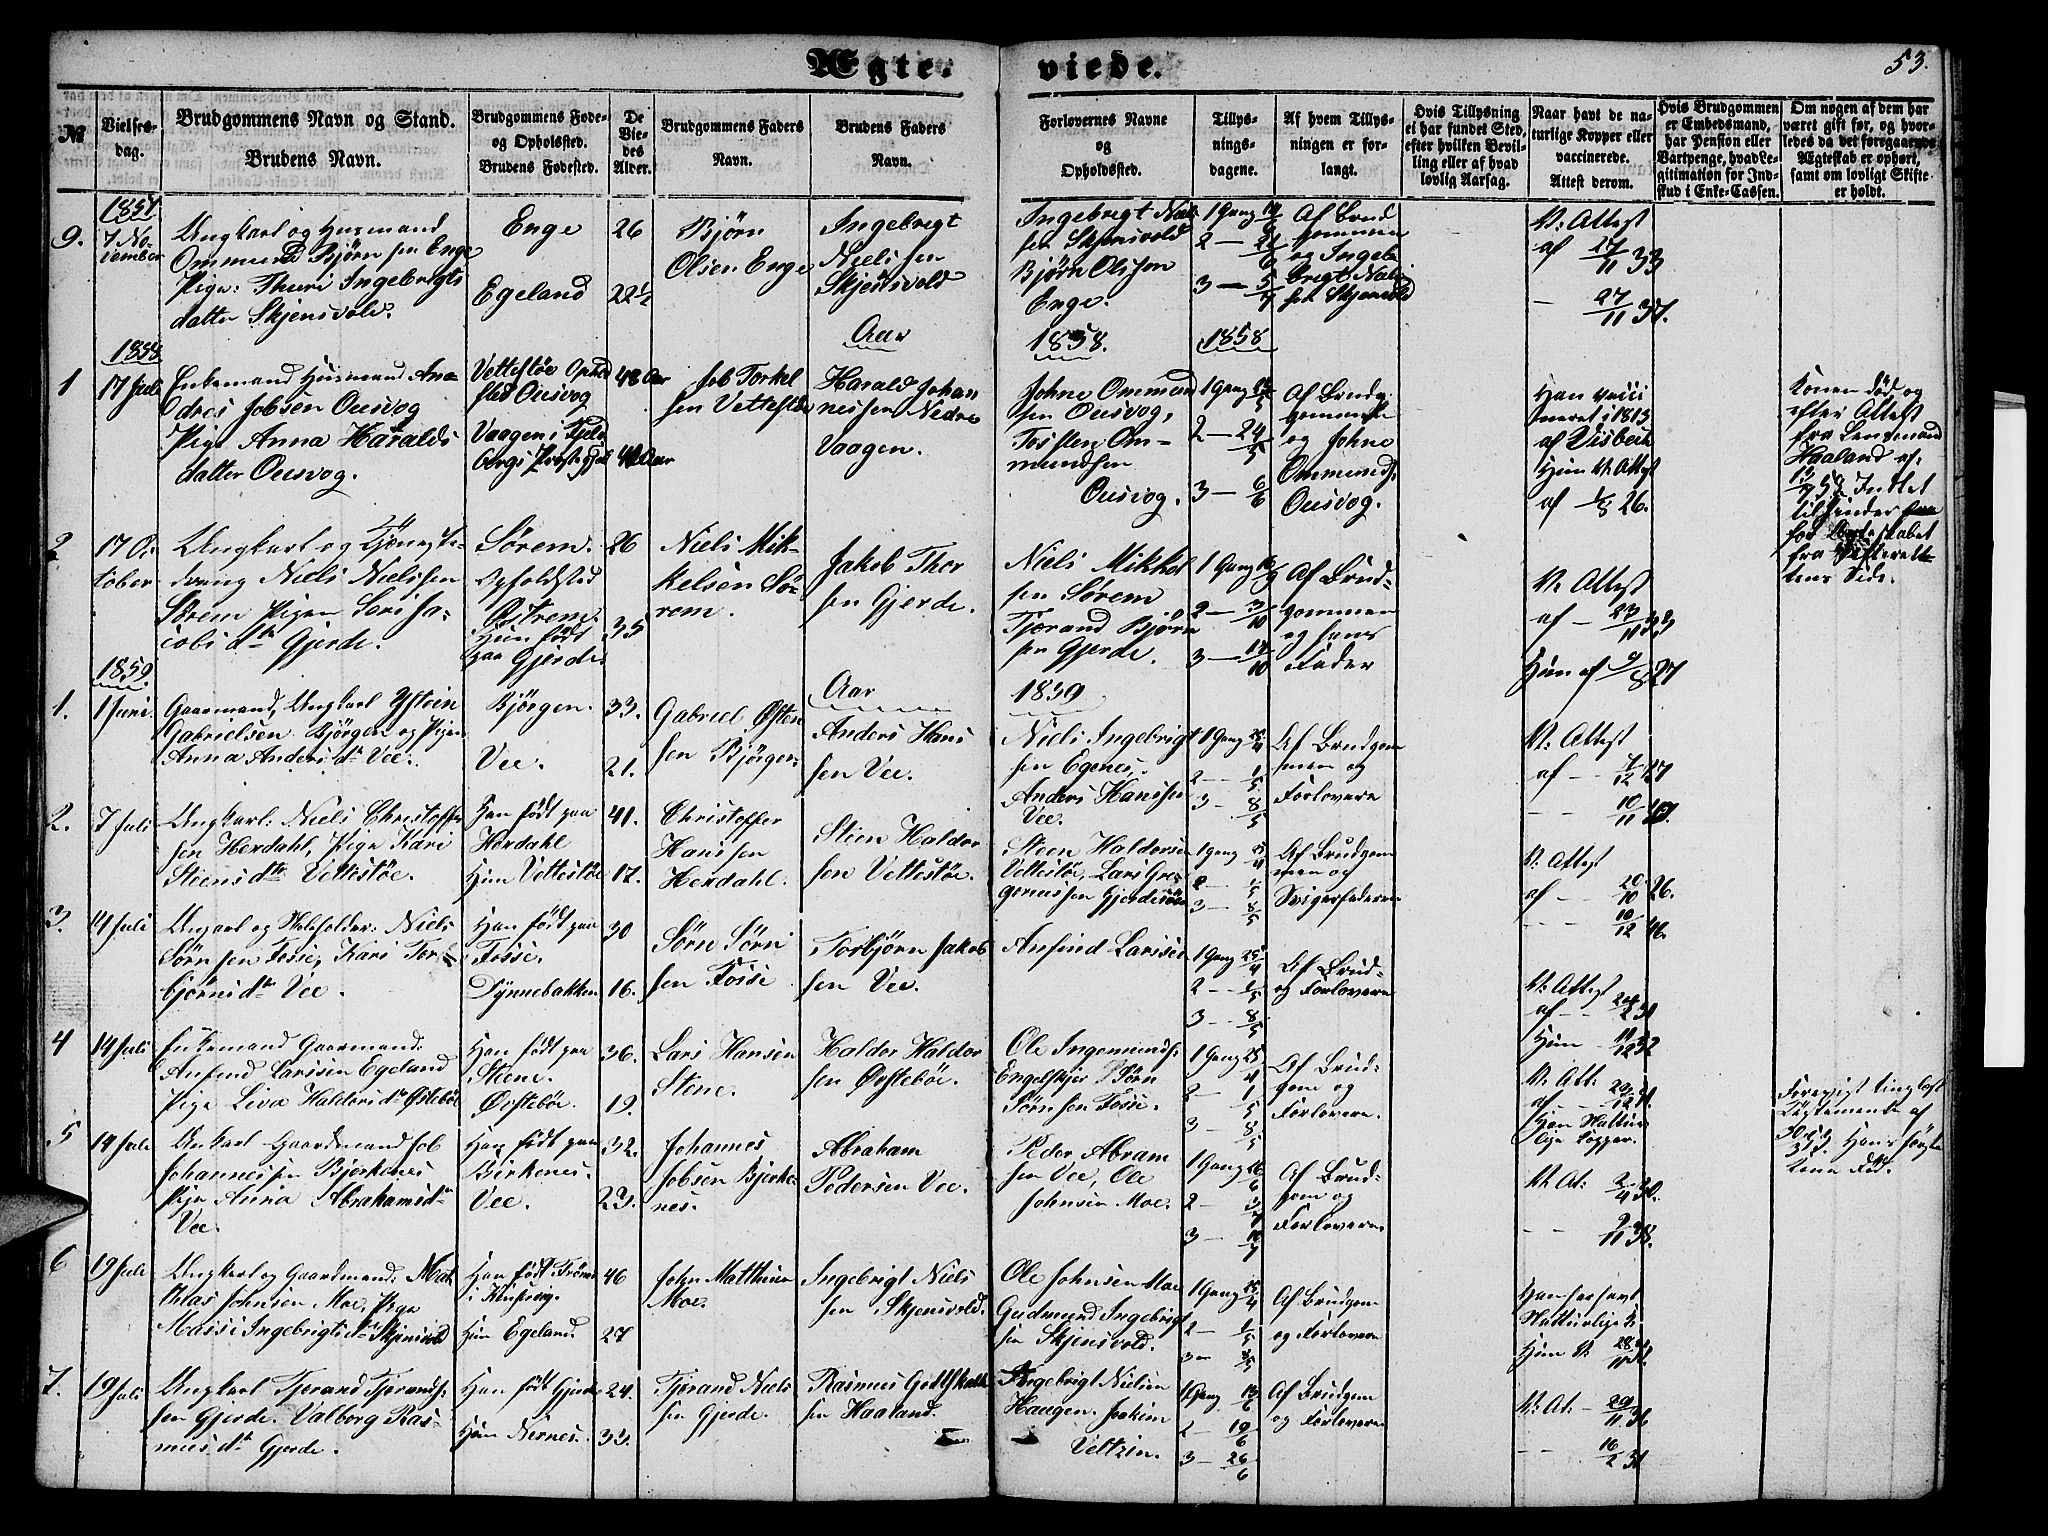 Ægte.
viede.
53.
№
Vielses-
dag.
Brudgommens Navn og Stand.
Brudens Navn.
Brudgommens Føde-
og Opholdsted.
Brudens Fødested.
De
Vie-
des
Alder.
Brudgommens Faders
Navn.
Brudens Faders
Navn.
Forlovernes Navne
og
Opholdsted.
Tillys-
nings-
dagene.
Af hvem Tillys-
ningen er for-
langt.
Hvis Tillysning
ei har fundet Sted,
efter hvilken Bevil-
ling eller af hvad
lovlig Aarsag.
Naar havt de na-
turlige Kopper eller
vaccinerede.
Attest derom.
Hvis Brudgommen
er Embedsmand,
har Pension eller
Vartpenge, hvad Le-
gitimation for Ind-
skud i Enke-Cassen.
Om nogen af dem har
været gift før, og hvor-
ledes da det foregaaende
Ægteskab er ophørt,
samt om lovligt Skifte
er holdt.
1857
9.
7 No-
vember
Ungkarl og Husmand
Ommund Bjørnsen Enge
Pige: Thuri Ingebrigts
datter Skjensvold.
Enge
Egeland
26
22½
Bjørn
Olsen Enge
Ingebrigt
Nielssen
Skjensvold
Ingebrigt Niels
sen Skjensvold
Bjørn Olssen
Enge.
1 Gang
2 —
3 — 5/7
Af Brud
gommen
og Ingeb
brigt Niels
sen Skjensvold
V: Attest
af 27/11 33
— 27/11 37.
Aar
1858.
1858
1858
1
17 Juli
Enkemand Husmand An-
dres Jobsen Ousvog
Pige Anna Haralds
datter Ousvog.
Vettestøe Ophold
sted Ousvog
Vaagen i Fjeld
bergs Præstegjeld
48 Aar
Job Torkel
sen Vettestøe
Harald Johan
nessen Nedre
Vaagen.
Johne Ommund
sen Ousvog,
Tosten Om-
mundsen
Ousvog.
1 Gang
2 — 24/5
3 — 6/6
Af Brud
gommen
og Johne
Ommunds.
Ousvog.
Han vacci
neret i 1813
af Visbech
Hun V. Attest
af 1/8 26.
Konen død og
efter Attest
fra Lensmand
Haaland af
Intet
til Hinder
for Ægteskabet
fra Skifteret-
tens Side.
2
17 Oc-
tober
Ungkarl og Tjeneste-
dreng Niels Nielssen
Sørem Pigen Sari Ja-
cobs dtr Gjerde.
Sørem.
Opholdsted
Østrem.
Hun født
paa Gjerde.
26
35
Niels Mik-
kelsen Sö-
rem.
Jakob Thor
sen Gjerde.
Niels Mikkel
sen Sørem
Tjerand Bjørn
sen Gjerde.
1 Gang
2 — 3/10
3 — 17/10
Af Brud-
gommen
og hans
Fader
V. Attest
af — 23/11 33
Hun af 9/8 27
1859.
Aar
1859
1.
1 Juni.
Gaardmand, Ungkarl Ystein
Gabrielsen Bjørgen og Pigen
Anna Anders dtr Vee.
Bjørgen.
Vee.
33.
21.
Gabriel Østen
sen Bjørgen
Anders Hans
sen Vee.
Niels Ingebrigt
sen Egenes,
Anders Hanssen
Vee.
1 Gang 25/4
2 — 1/5
3 — 8/5
Af Brudgom
men og
Forlovere
V: Attest
af — 7/12 27
2.
7 Juli
Ungkarl: Niels Christoffer
sen Herdahl, Pige Kari
Steens dtr Vettestøe.
Han født paa
Herdahl
Hun Vettestøe
41.
17.
Christoffer
Hanssen
Herdahl.
Steen Haldor
sen Vettestøe.
Steen Haldorsen
Vettestøe, Lars Gre-
goriussen Gjerdesøen
1 Gang 25/4
2 — 1/5
3 — 8/5
Af Brudgom
men og
Svigerfaderen
V. Attest
af — 20/10 26.
— 10/12 46.
3.
14 Juli
Ungkarl og Skoleholder: Niels
Sørnsen Fosse, Kari Tor-
bjørns dtr Vee.
Han født paa
Fosse.
Tynnebakken
30
16.
Sørn Sørn
sen Fosse
Torbjørn Jakob
sen Vee.
Anfind Larsen
1 Gang 25/4
2 — 1/5
3 — 8/5
Af Brud-
og Forlovere
V: Attest
Hun —
4
14 Juli
Enkemand Gaardmand:
Anfind Larssen Egeland
Pige Liva Haldors dtr Østebøe
Han født paa
Steene.
Øvstebøe.
36.
19.
Lars Hansen
Stene.
Haldor Haldor
sen Øvstebøe.
Ole Ingemunds.
Engelskjer Sørn
Sørnsen Fosse.
1 Gang 25/4
2 — 1/5
3 — 8/5
Af Brud-
gom og
Forlovere.
V. Att:
Han Nattur
lige Kopper.
Forevist tinglæst
Testamente af
Hans første
kone død.
5
14 Juli
Unkarl Gaardmand Job
Johannessen Bjørkenes
Pige Anna Abrahams dtr
Vee.
Han født paa
Birkenes.
Vee.
32.
23.
Johannes
Jobsen Bjerke-
nes.
Abraham
Pedersen Vee.
Peder Abram
sen Vee, Ole
Johnsen Moe.
1 Gang 26/6
2 — 3/7
3 — 10/7
Af Brud-
gom og
Forlovere.
V. At: 2/4 30.
— 9/11 38.
6
19 Juli
Ungkarl og Gaardmand: Mat
thias Johnsen Moe, Pige
Massi Ingebrigts dtr Skjensvold
Han født
Hun Egeland.
46
27
John Matthiasen
Moe.
Ingebrigt Niels
sen Skjensvold.
Ole Johnsen Moe
Gudmund Ingebrigt
sen Skjensvold.
1 Gang 25/4
2 — 1/5
3 — 8/5
Af Brudgom
og Forlovere
Han har havt
Natturlige K.
Hun V:
7.
19 Juli
Ungkarl Tjerand Tjerands
sen Gjerde. Valborg Ras-
mus dtr Gjerde.
Han født Gjerde
Hun Nernes.
24.
33.
Tjerand Niels
sen Gjerde.
Rasmus Gottskalk
sen Haaland.
Ingebrigt Nielsen
Haugen. Joakim
Veltzin.
1 Gang
2 — 19/6
3 — 26/6
Af Brudgom
og Forlovere
V: At: — 29/11 36
— 16/2 31